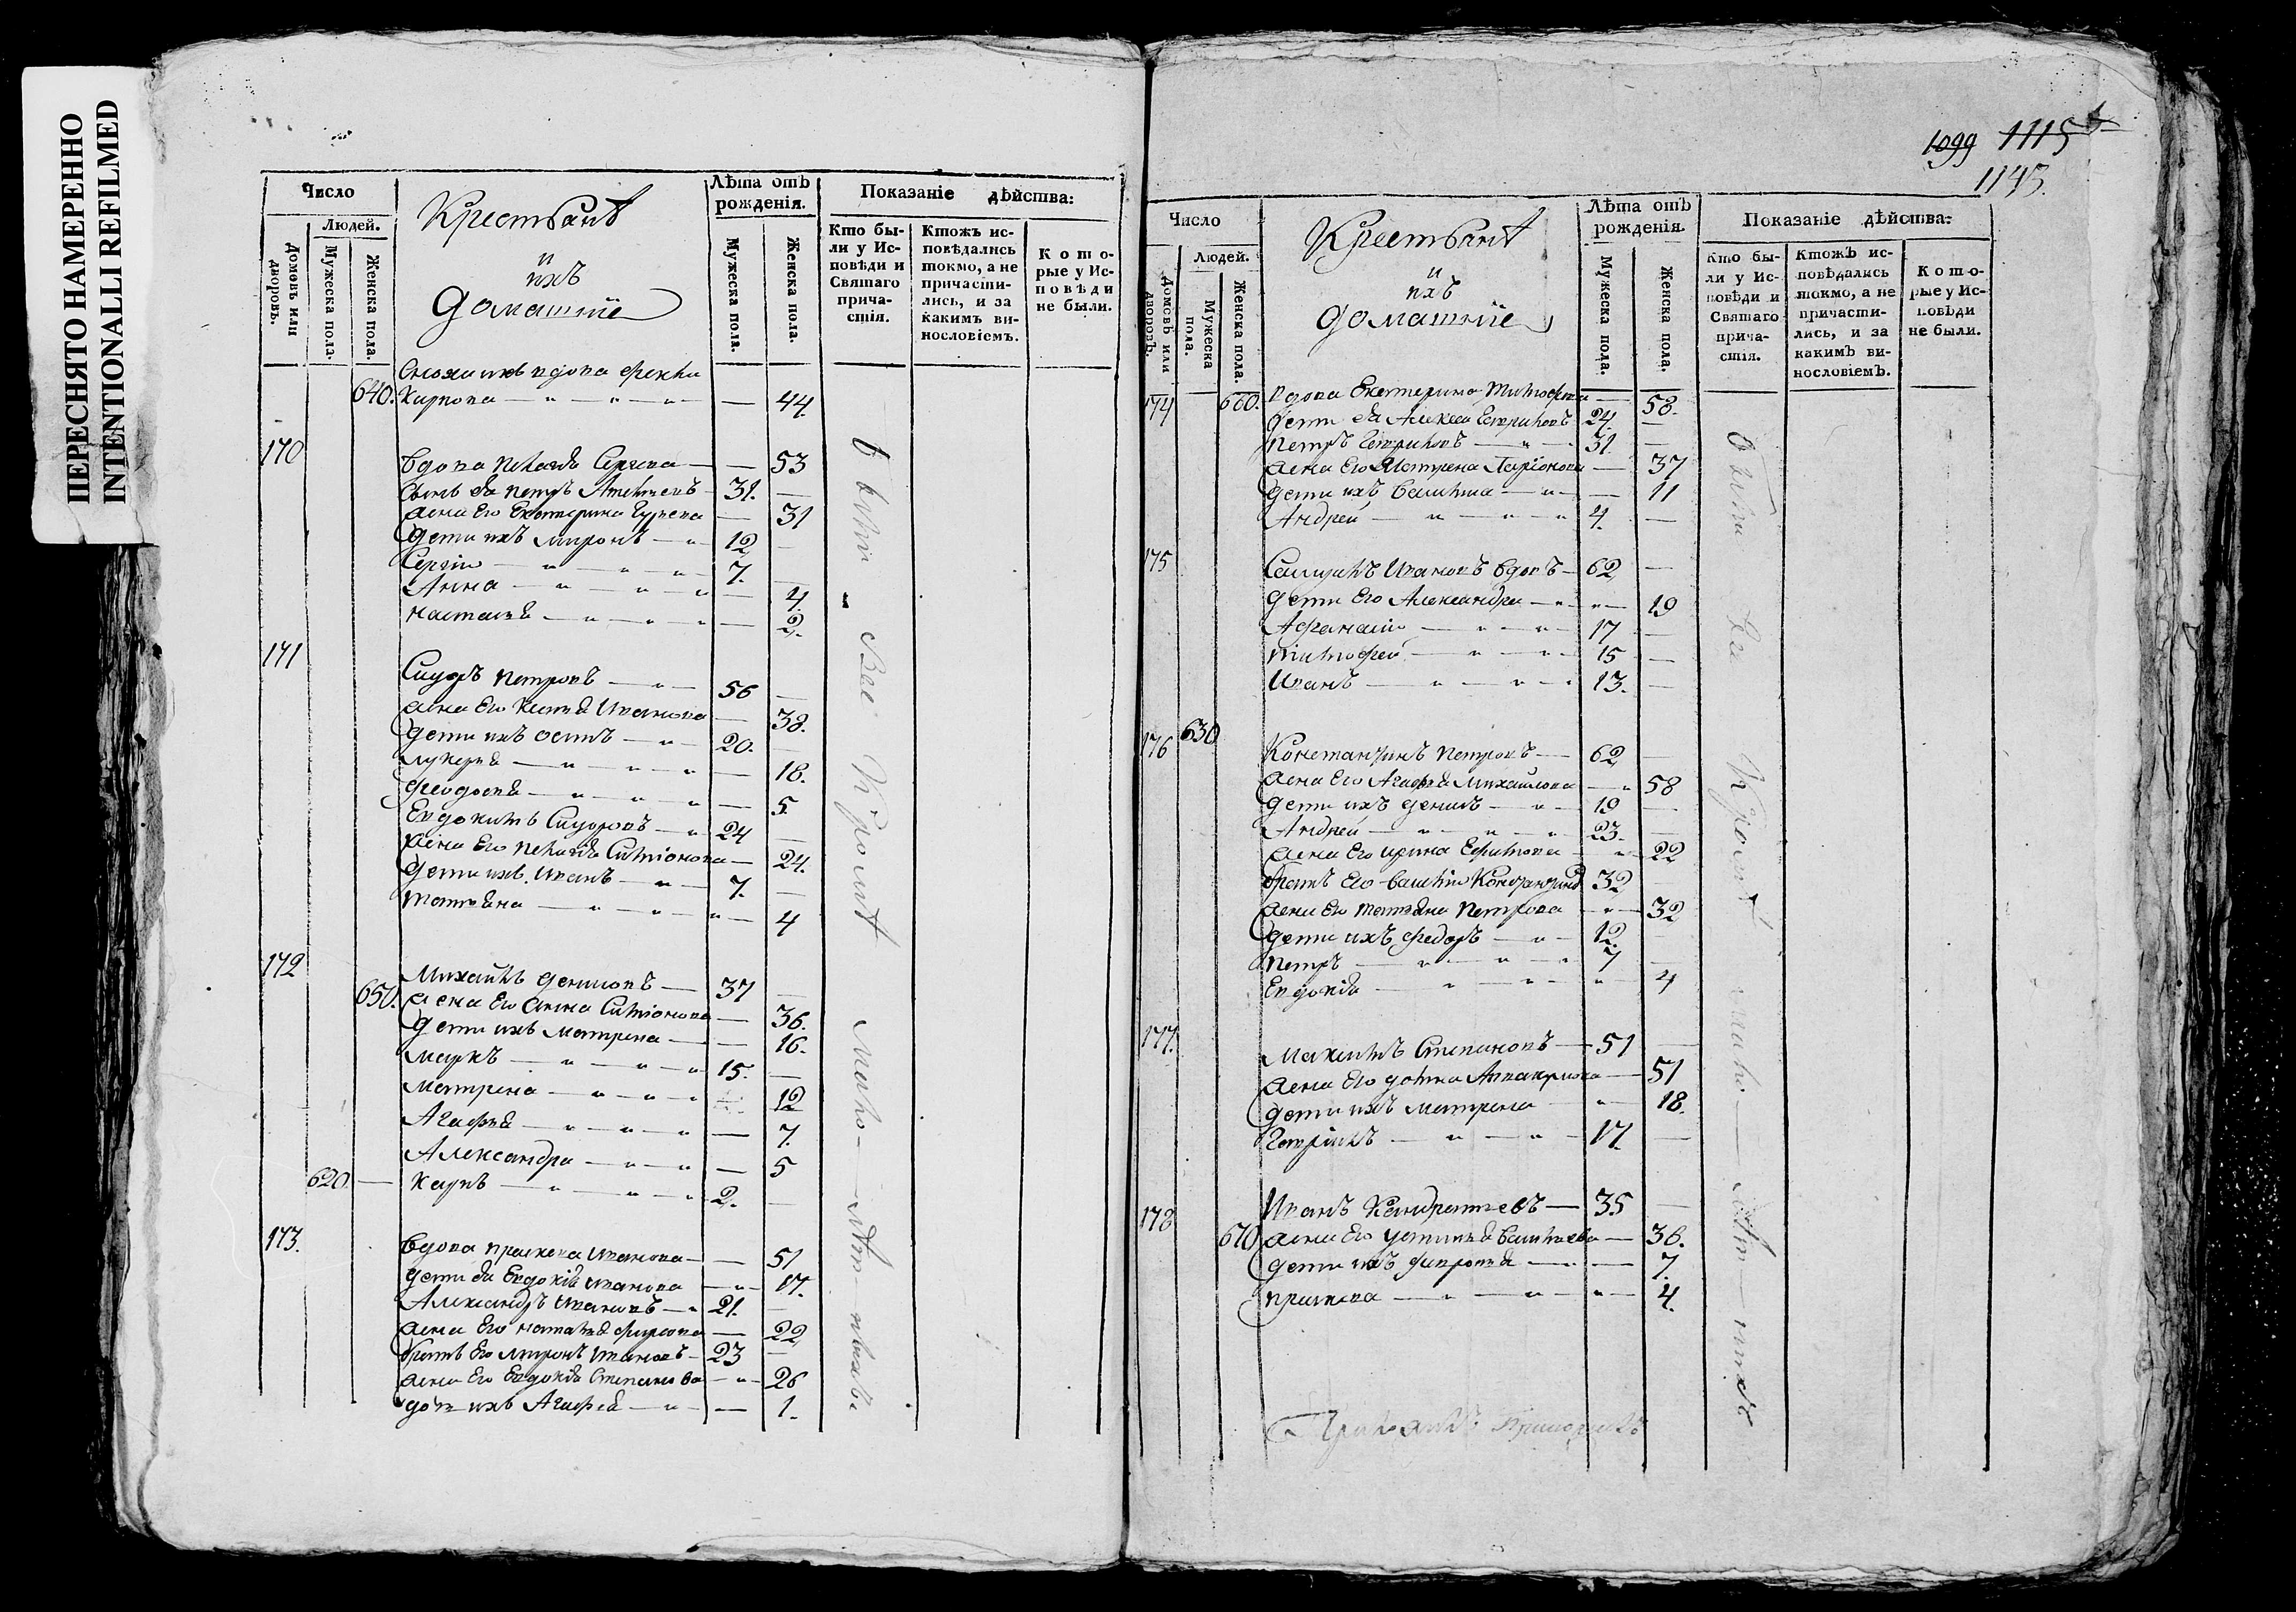 ПЕРЕСНЯТО НАМЕРЕННО
INTENTIONALLI REFILMED
Число
Людей.
Домовъ или дворовъ.
Мужеска пола.
Женска пола.
Крестьяне
и
ихъ
домашніе
Лѣта отъ рожденія.
Мужеска пола.
Женска пола.
Показаніе дѣйства:
Кто были у Исповѣди и Святаго причастія.
Ктожъ исповѣдались токмо, а не причастились, и за какимъ винословіемъ.
Которые у Исповѣди не были.
вдова
640. Карпова — 44
170
Вдова Пелагѣя Сергѣева — 53
сынъ ея Петръ — 31.
жена Его Екатерина Гурьева — 31
дети ихъ Миронъ — 12
Сергѣй — 7.
Анна — 4
Настасья — 2.
171
Сидоръ Петровъ — 56
жена Его Ивановна — 38.
дети ихъ Осипъ — 20.
Лукерья — 18.
Феодосья — 5.
Евдокимъ Сидоровъ — 24
жена Его Пелагѣя Симіонова — 24.
дети ихъ Иванъ — 7.
Татьяна — 4
172
Михайлъ Денисовъ — 37
650. жена Его Анна Симіонова — 36.
дети ихъ Матрена — 16.
Маркъ — 15.
Матрена — 12
Агафья — 7.
Александра — 5
620. Карпъ — 2.
173.
Вдова Праскева Иванова — 51
дети ея Евдокія Иванова — 17.
Александръ Ивановъ — 21.
жена Его Наталья Фирсова — 22
братъ Его Миронъ Ивановъ — 23
жена Его Евдокія Степанова — 26
дочь ихъ Агафья — 1.
Все Кроме мало-
1099 1115
1145.
Число
Людей.
Домовъ или дворовъ.
Мужеска пола.
Женска пола.
Крестьяне
и
ихъ
домашніе
Лѣта отъ рожденія.
Мужеска пола.
Женска пола.
Показаніе дѣйства:
Кто были у Исповѣди и Святаго причастія.
Ктожъ исповѣдались токмо, а не причастились, и за какимъ винословіемъ.
Которые у Исповѣди не были.
174 660. вдова Екатерина Тимофѣева — 58.
дети ея Алексей — 24.
Петръ — 31.
жена Его Матрена Ларіонова — 37
дети ихъ — 11
Андрей — 4.
175
Ивановъ вдовъ — 62
дети Его Александра — 19
Афанасій — 17
Тимофей — 15
Иванъ — 13.
176 630
Константинъ Петровъ — 62
жена Его Агафья Михайлова — 58
дети ихъ Денисъ — 19
Андрей — 23.
жена Его Ирина Ефимова — 22
братъ Его Василій — 32
жена Его Татьяна Петрова — 32
дети ихъ Федоръ — 12.
Петръ — 7
Евдокія — 4
177.
Максимъ Степановъ — 51
жена Его Домна — 51
дети ихъ Матрена — 18.
Гаврілъ — 17.
178
Иванъ Кандратьевъ — 35
670 жена Его Устинья Васильева — 36.
дети ихъ Февронья — 7.
Праскева — 4.
Кроме мало